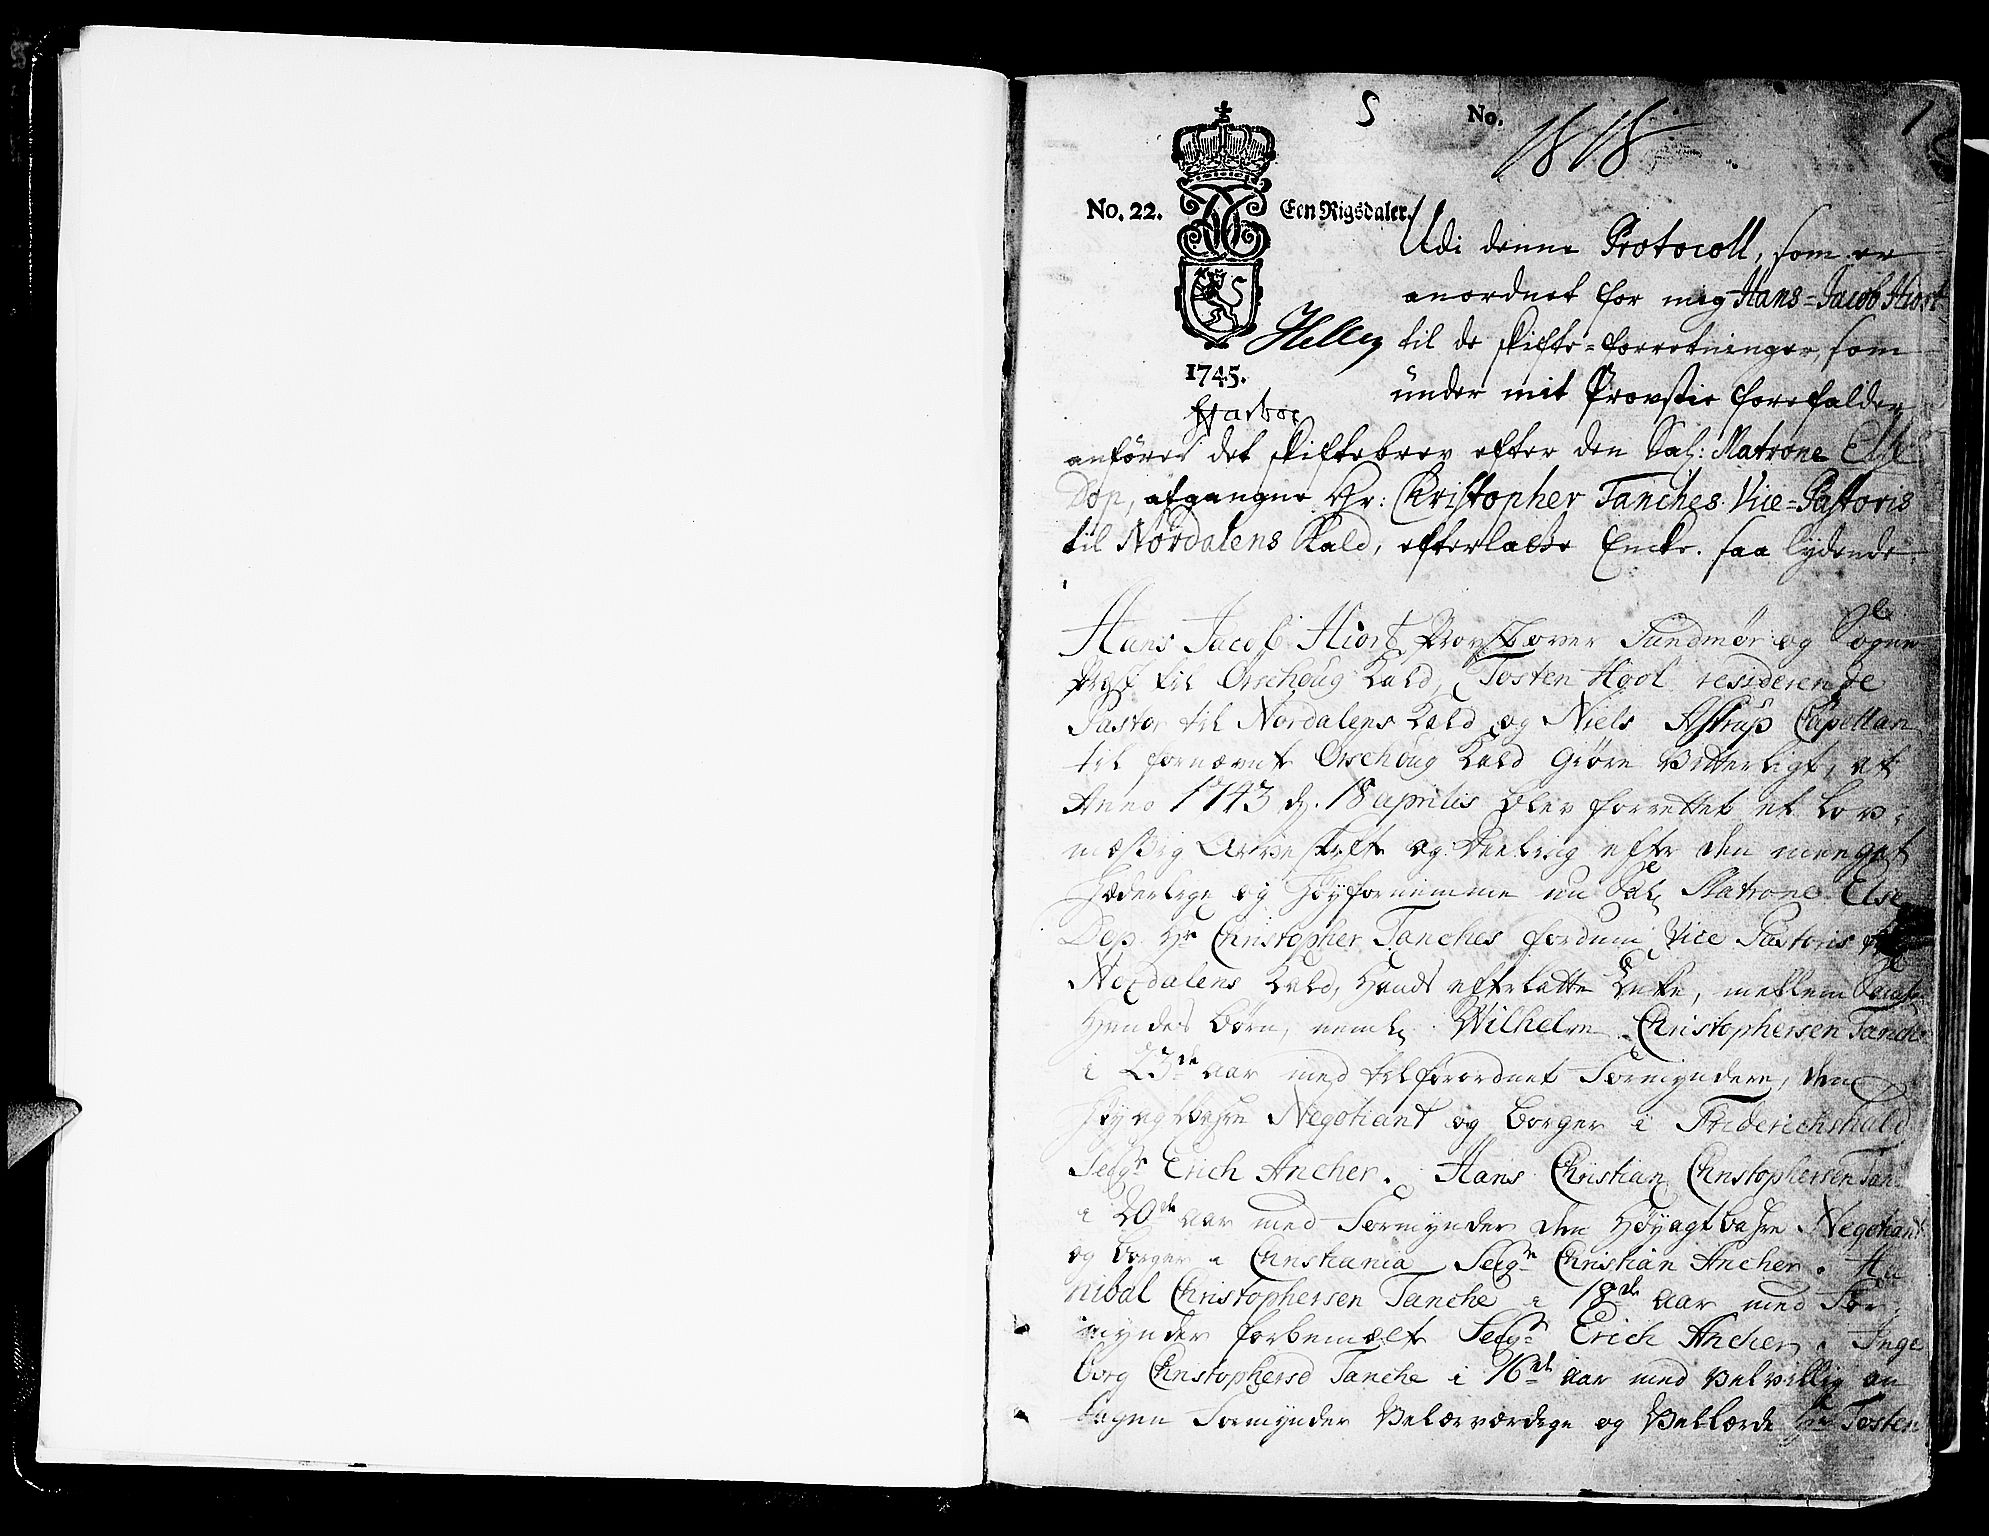 S No. 1818 1
No. 22. Een Rigsdaler.
Udi denne Protocoll, som er
anordnet for mig Hans-Jacob Hiort
til de skifte-forretninger, som
1745.
under mit Provstie forefalder,
anföres det skiftebrev efter den Sal: Matrone Else
Dop, afgangne Hr: Christopher Tanches Vice-Pastoris
til Nordalens Kald, efterladte Encke. saa lydende
Hans Jacob Hiort Provst over Sundmör og Sogne
Præst til Örschoug Kald, Tosten Hool residerende
Pastor til Nordalens Kald og Niels Astrup Capellan
til fornævnte Örschoug Kald Giöre Vitterligt, at
Anno 1743 d. 18 aprilis blev forrettet et Lov-
mæssig Arveskifte og Deeling efter den meeget
Hæderlige og Höyfornemme nu Sal Matrone Else
Dop Hr Christopher Tanches fordum Vice Pastoris
Nordalens Kald, Hands efterlatte Enke, mellem
Hendes Börn, neml. Wilhelm Christophersen Tanche
i 23de aar med tilforordnet Formyndere, den
Höyagtbahre Negotiant og Borger i Friderichshald
Seigr Erich Ancher. Hans Christian Christophersen Tan-
i 20de aar med Formynder den Höyagtbahre Negotiant
og Borger i Christiania Seigr Christian Ancher. Ha
nibal Christophersen Tanche i 18de aar med For-
mynder forbemelte Seigr Erich Ancher. Inge
borg Christophersd Tanche i 16de aar med Velvillig an
tagen Formynder Velærværdige og Vellærde Hr Tosten